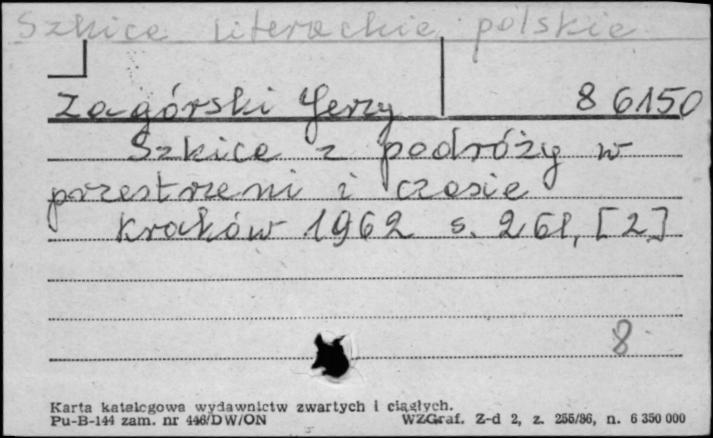 Szkice literackie polskie
Zagórski Jerzy 86150
Szkice z podróży w
przestrzeni i czasie
Kraków 1962 s. 261, [2]
8
Karta katalogowa wydawnictw zwartych i ciągłych.
Pu-B-144 zam. nr 446/DW/ON WZGraf. Z-d 2, z. 255/86, n. 6 350 000